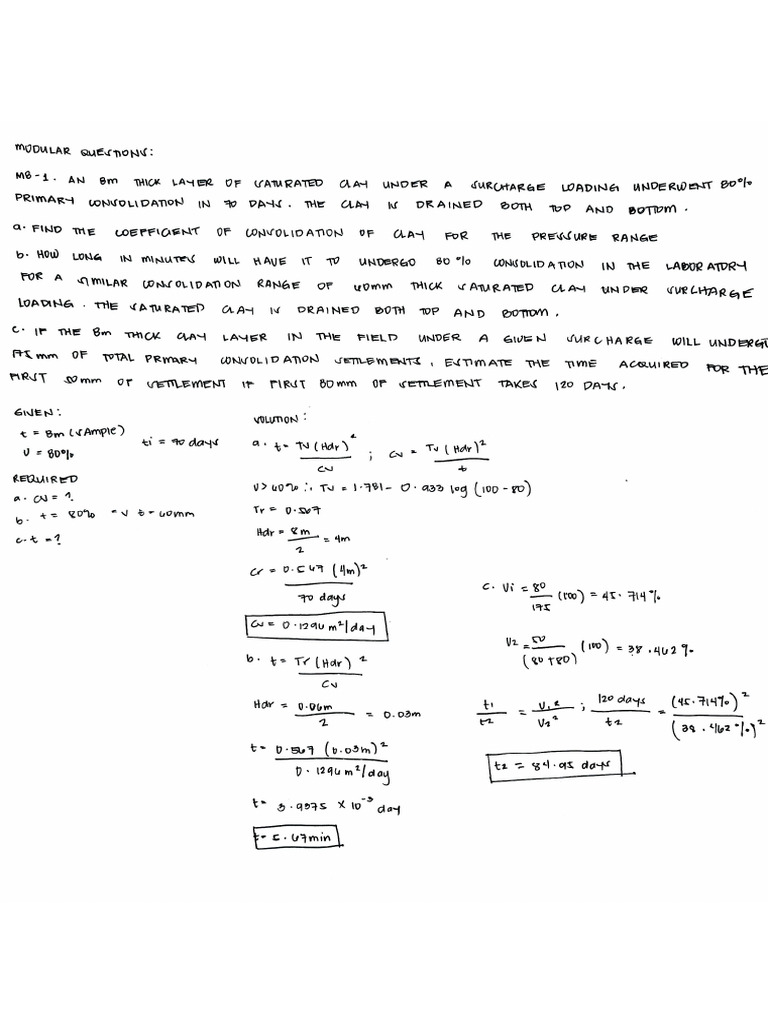 MODULAR QUESTIONS:
M8-1. AN 8m THICK LAYER OF SATURATED CLAY UNDER A SURCHARGE LOADING UNDERWENT 80%
PRIMARY CONSOLIDATION IN 70 DAYS. THE CLAY IS DRAINED BOTH TOP AND BOTTOM.
a. FIND THE COEFFICIENT OF CONSOLIDATION OF CLAY FOR THE PRESSURE RANGE
b. HOW LONG IN MINUTES WILL HAVE IT TO UNDERGO 80% CONSOLIDATION IN THE LABORATORY
FOR A SIMILAR CONSOLIDATION RANGE OF 60mm THICK SATURATED CLAY UNDER SURCHARGE
LOADING. THE SATURATED CLAY IS DRAINED BOTH TOP AND BOTTOM.
C. IF THE 8m THICK CLAY LAYER IN THE FIELD UNDER A GIVEN SURCHARGE WILL UNDERGO
175mm OF TOTAL PRIMARY CONSOLIDATION SETTLEMENTS, ESTIMATE THE TIME ACQUIRED FOR THE
FIRST 50mm OF SETTLEMENT IF FIRST 80mm OF SETTLEMENT TAKES 120 DAYS.
GIVEN:
t = 8m (SAmple)
U = 80%
ti = 70 days
REQUIRED
a. CV = ?
b. t = 80% = V t = 60mm
c. t = ?
SOLUTION:
a. t = TV (Hdr)²/CV ; CV = TV (Hdr)²/t
U > 60% ∴ TV = 1.781 - 0.933 log (100-80)
Tr = 0.567
Hdr = 8m/2 = 4m
Cr = 0.567 (4m)²/70 days
CV = 0.1296 m²/day
b. t = Tr (Hdr)²/CV
Hdr = 0.06m/2 = 0.03m
t = 0.567 (0.03m)²/0.1296 m²/day
t = 3.9375 × 10⁻³ day
t = 5.67min
C. Vi = 80/175 (100) = 45.714%
V2 = 50/(80+80) (100) = 38.462%
t1/t2 = V1²/V2² ; 120 days/t2 = (45.714%)²/(38.462%)²
t2 = 84.95 days